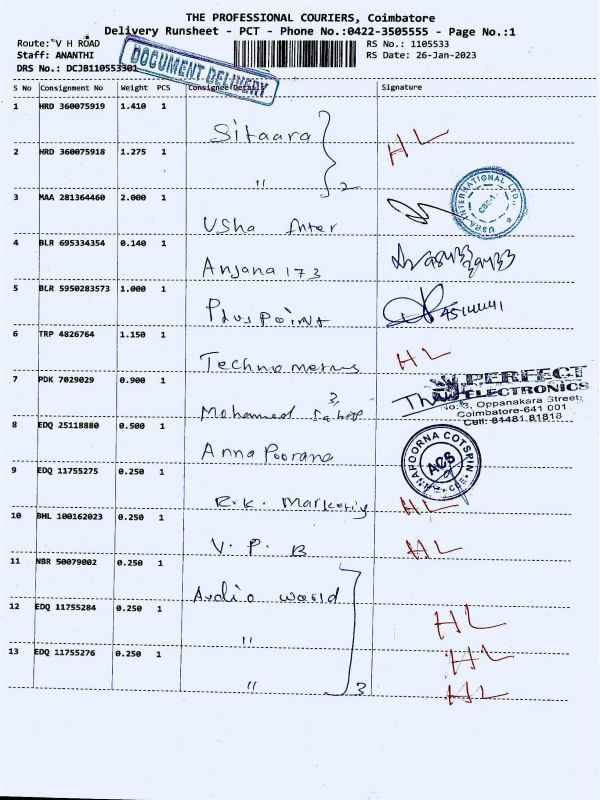 THE PROFESSIONAL COURIERS, Coimbatore
Delivery Runsheet - PCT - Phone No.:0422-3505555 - Page No.:1
Route: V H ROAD RS No.: 1105533
Staff: ANANTHI RS Date: 26-Jan-2023
DRS No.: DCJB110553301
DOCUMENT DELIVERY
S No Consignment No Weight PCS Consignee Details Signature
1 HRD 360075919 1.410 1
Sitaara HL
2 HRD 360075918 1.275 1
" 2
3 MAA 281364460 2.000 1
Usha Inter USHA INTERNATIONAL LTD.,
4 BLR 695334354 0.140 1
Anjana 173
5 BLR 5950283573 1.000 1
Plus Point
6 TRP 4826764 1.150 1
Techno HL
7 PDK 7029029 0.900 1
PERFECT
ELECTRONICS
No. 3, Oppanakara Street,
Coimbatore-641 001
Cell: 81481 81818
Mohammed
8 EDQ 25118880 0.500 1
Anna Poorana ANNAPOORNA COTSPIN ACS CBE
9 EDQ 11755275 0.250 1
R.K. Marketing HL
10 BHL 100162023 0.250 1
V. P. B HL
11 NBR 50079002 0.250 1
Audio World
12 EDQ 11755284 0.250 1
" HL
13 EDQ 11755276 0.250 1 HL
" 3 HL